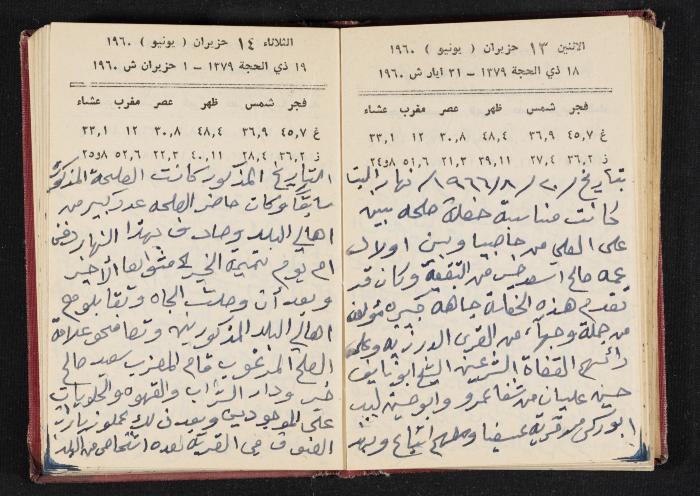 الاثنين ١٣ حزيران ( يونيو ) ١٩٦٠
١٨ ذي الحجة ١٣٧٩ — ٣١ ايار ش ١٩٦٠
فجر شمس ظهر عصر مغرب عشاء
غ ٤٥,٧ ٣٦,٩ ٤٨,٤ ٣٠,٨ ١٢ ٣٣,١
ز ٣٦,٢ ٢٧,٤ ٣٩,١١ ٢١,٣ ٥١,٦ ٢٤و٨
بتاريخ ٢٠/٨/١٩٦٦ نهار
كانت مناسبة حفلة صلحه بين
علي الصلي من وبين اولاد
عمه صالح اسعد من البقيعة وكان قد
تقدم هذه الحفلة جاهه كبيره مؤلفه
من جملة وجهاء من القرى الدرزيه وعلى
رأسهم القضاة الشرعين الشيخ ابو نايف
حسين عليان من شفاعمرو وابو حسين لبيب
ابو ركن من قرية عسفيا
الثلاثاء ١٤ حزيران ( يونيو ) ١٩٦٠
١٩ ذي الحجة ١٣٧٩ — ١ حزيران ش ١٩٦٠
فجر شمس ظهر عصر مغرب عشاء
غ ٤٥,٧ ٣٦,٩ ٤٨,٤ ٣٠,٨ ١٢ ٣٣,١
ز ٣٦,٢ ٢٨,٤ ٤٠,١١ ٢٢,٣ ٥٢,٦ ٢٥و٨
التاريخ المذكور كانت الصلحة المذكوره
سابقا وكان حاضر الصلحه عدد كبير من
اهالي البلد وصادف بهذا النهار
يوم
وبعد أن وصلت الجاه وتقابلو مع
اهالي البلد المذكورين وتصافحو علامة
الصلح المرغوب قام المضرب سعيد صالح
خير ودار الشراب والقهوه والحلويات
على الموجودين وبعد ذلك عملو زيارات
في القرية لعدة اشخاص من البلد